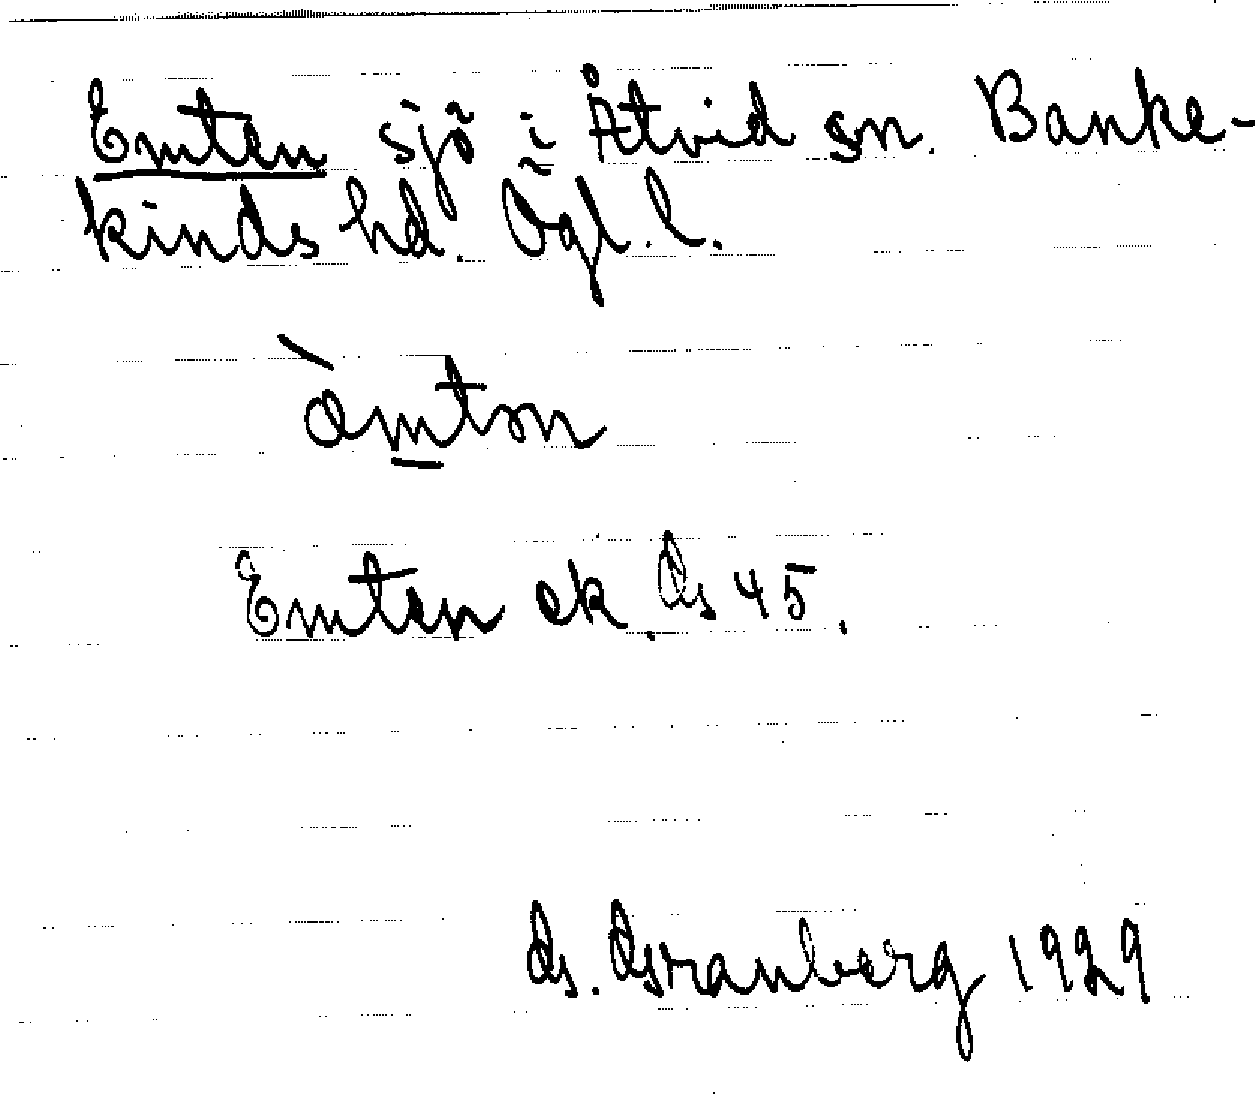 Emten sjö i Åtvid sn. Banke-
kinds hd. Ögl. l.
àmtn
Emten ek. G 45.
G. Granberg 1929